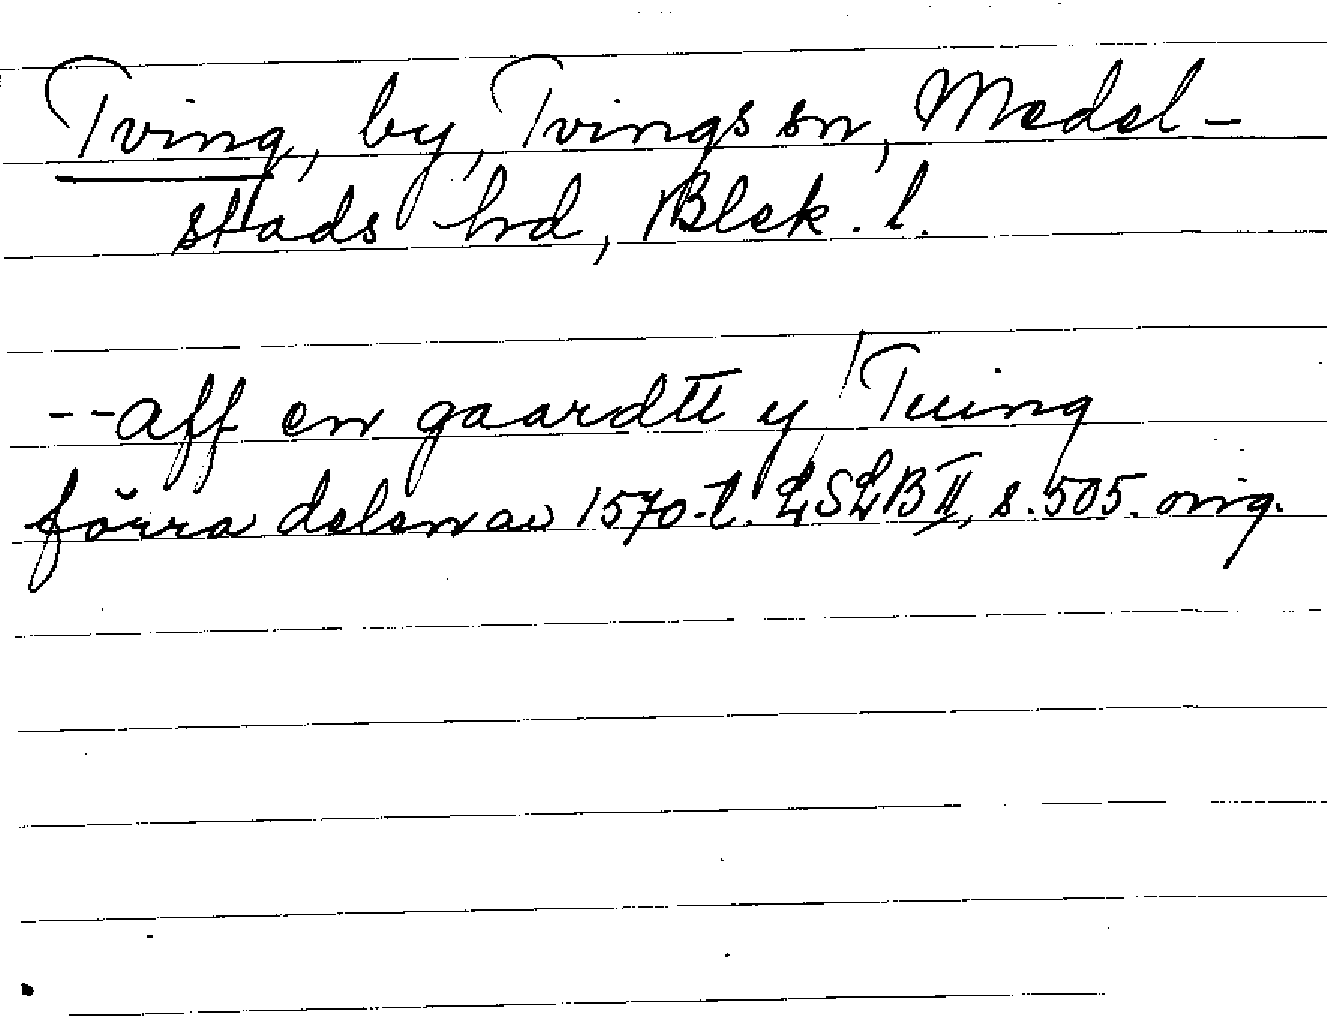 Tving, by, Tvings sn, Medel-
stads hrd, Blek. l.
--aff en gaardtt y Tuing
förra delen av 1570-t. LSLB II, s. 505. orig.